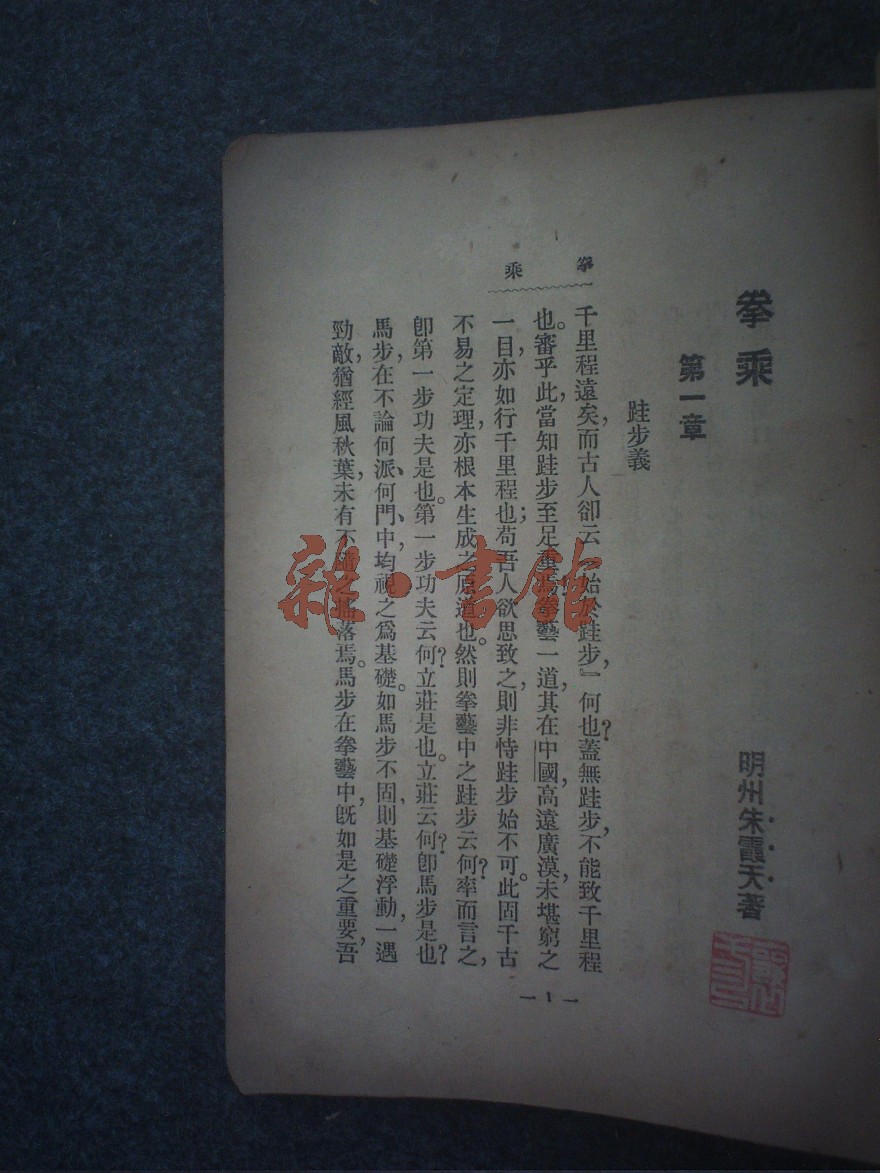 拳乘
第一章
明州朱霞天著
跬步義
拳乘
千里程遠矣,而古人卻云『始於跬步,』何也?蓋無跬步,不能致千里程
也。審乎此,當知跬步至足重焉。拳藝一道,其在中國,高遠廣漠,未堪窮之
一目,亦如行千里程也;苟吾人欲思致之,則非恃跬步始不可。此固千古
不易之定理,亦根本生成之原道也。然則拳藝中之跬步云何?率而言之,
卽第一步功夫是也。第一步功夫云何?立莊是也。立莊云何?卽馬步是也?
馬步,在不論何派、何門、中,均視之爲基礎。如馬步不固,則基礎浮動,一遇
勁敵,猶經風秋葉,未有不 之搖落焉。馬步在拳藝中,旣如是之重要,吾
一1一
雜·書館